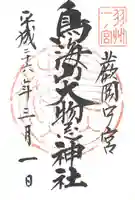 蕨岡口宮
羽州
一ノ宮
鳥海山大物忌神社
平成二十八年三月一日